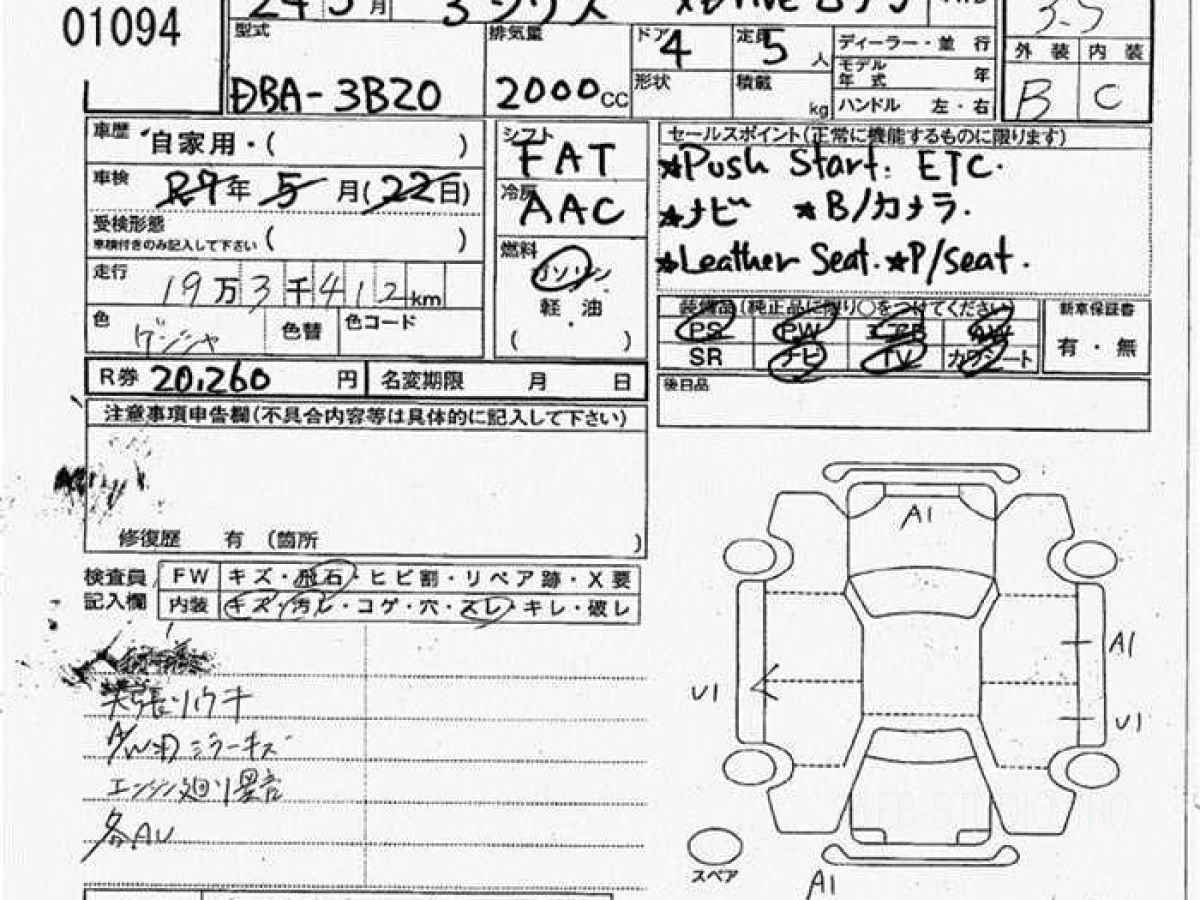 01094
24 5月 3シリーズ
3.5
型式 排気量 ドア 定員 ディーラー・並 行 外 装 内 装
4 5人 モデル年 式 年
DBA-3B20 2000cc 形状 積載 kg ハンドル 左・右 B C
車歴 自家用・( ) シフト FAT セールスポイント(正常に機能するものに限ります)
車検 R7年 5月(22日) 冷房 AAC ★Push Start. ETC.
受検形態 ★ナビ ★B/カメラ.
車検付きのみ記入して下さい ( ) 燃料 ガソリン ★Leather Seat. ★P/seat.
走行 19万3千412km 軽・油 装備品(純正品に限り○をつけてください) 新車保証書
色 色替 色コード ( ) PS PW エアB AW 有・無
SR ナビ TV カワシート
R券 20,260円 名変期限 月 日 後日品
注意事項申告欄(不具合内容等は具体的に記入して下さい)
修復歴 有 (箇所 )
検査員記入欄 FW キズ・飛石・ヒビ割・リペア跡・X要
内装 キズ・汚レ・コゲ・穴・スレ・キレ・破レ
天張リウキ
ミラーキズ
エンジン廻リ異音
各AU
A1
A1
U1
U1
スペア
A1